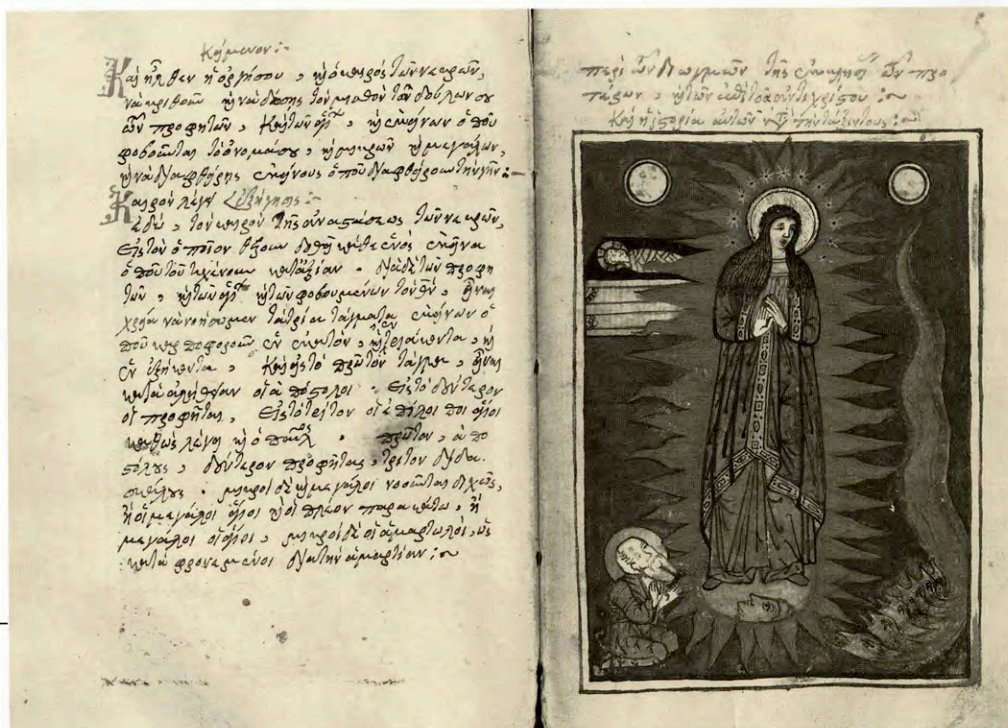 Κείμενον :-
Καὶ ἦλθεν ἡ ὀργή σου, κὶ ὁ καιρὸς τῶν νεκρῶν,
νὰ κριθοῦν κὶ νὰ δώσης τὸν μισθὸν τῶν δούλων σου
τῶν προφητῶν, καὶ τῶν ἁγί, κὶ ἐκείνων ὁποῦ
φοβοῦνται τὸ ὄνομά σου, κὶ μικρῶν κὶ μεγάλων,
κὶ νὰ διαφθείρης ἐκείνους ὁποῦ διαφθείρουν τὴν γῆν :-
Καιρὸν λέγει ἐξήγησις :-
ἐδῶ, τὸν καιρὸν τῆς ἀναστάσεως τῶν νεκρῶν,
εἰς τὸν ὁποῖον θέλουν δοθῆ καθε ἑνὸς ἐκεῖνα
ὁποῦ τοῦ κατἀξίαν · διὰ δὲ τῶν προφη
τῶν, κὶ τῶν ἁγί κὶ τῶν φοβουμένων τὸν θν, εἶναι
χρεία νὰ νοήσωμεν τὰ τρία τάγματα ἐκείνων ὁ
ποῦ καρποφοροῦν ἐν ἑκατόν, κὶ ἐν τριάκοντα, κὶ
ἐν ἑξήκοντα, καὶ εἰς τὸ πρῶτον τάγμα, εἶναι
κατὰ ἀλήθειαν οἱ ἀπόστολοι · εἰς τὸ δεύτερον
οἱ προφῆται, εἰς τὸ τρίτον οἱ ἐπίλοιποι ἅγιοι
καθὼς λέγει κὶ ὁ παῦλ · πρῶτον, ἀπο
στόλους, δεύτερον προφήτας, τρίτον διδα
σκάλους · μικροὶ δὲ κὶ μεγάλοι νοοῦνται διχῶς,
ἢ οἱ μεγάλοι ἅγιοι κὶ οἱ πλέον παρακάτω, ἢ
μεγάλοι οἱ ἅγιοι, μικροὶ δὲ οἱ ἁμαρτωλοί, ὡς
καταφρονεμένοι διὰ τὴν ἁμαρτίαν :~
περὶ τῶν διωγμῶν τῆς ἐκκλησί τῶν προ
τέρων, κὶ τῶν ἐπὶ τοῦ ἀντιχρίστου :~
Καὶ ἡ ἱστορία αὐτῶν